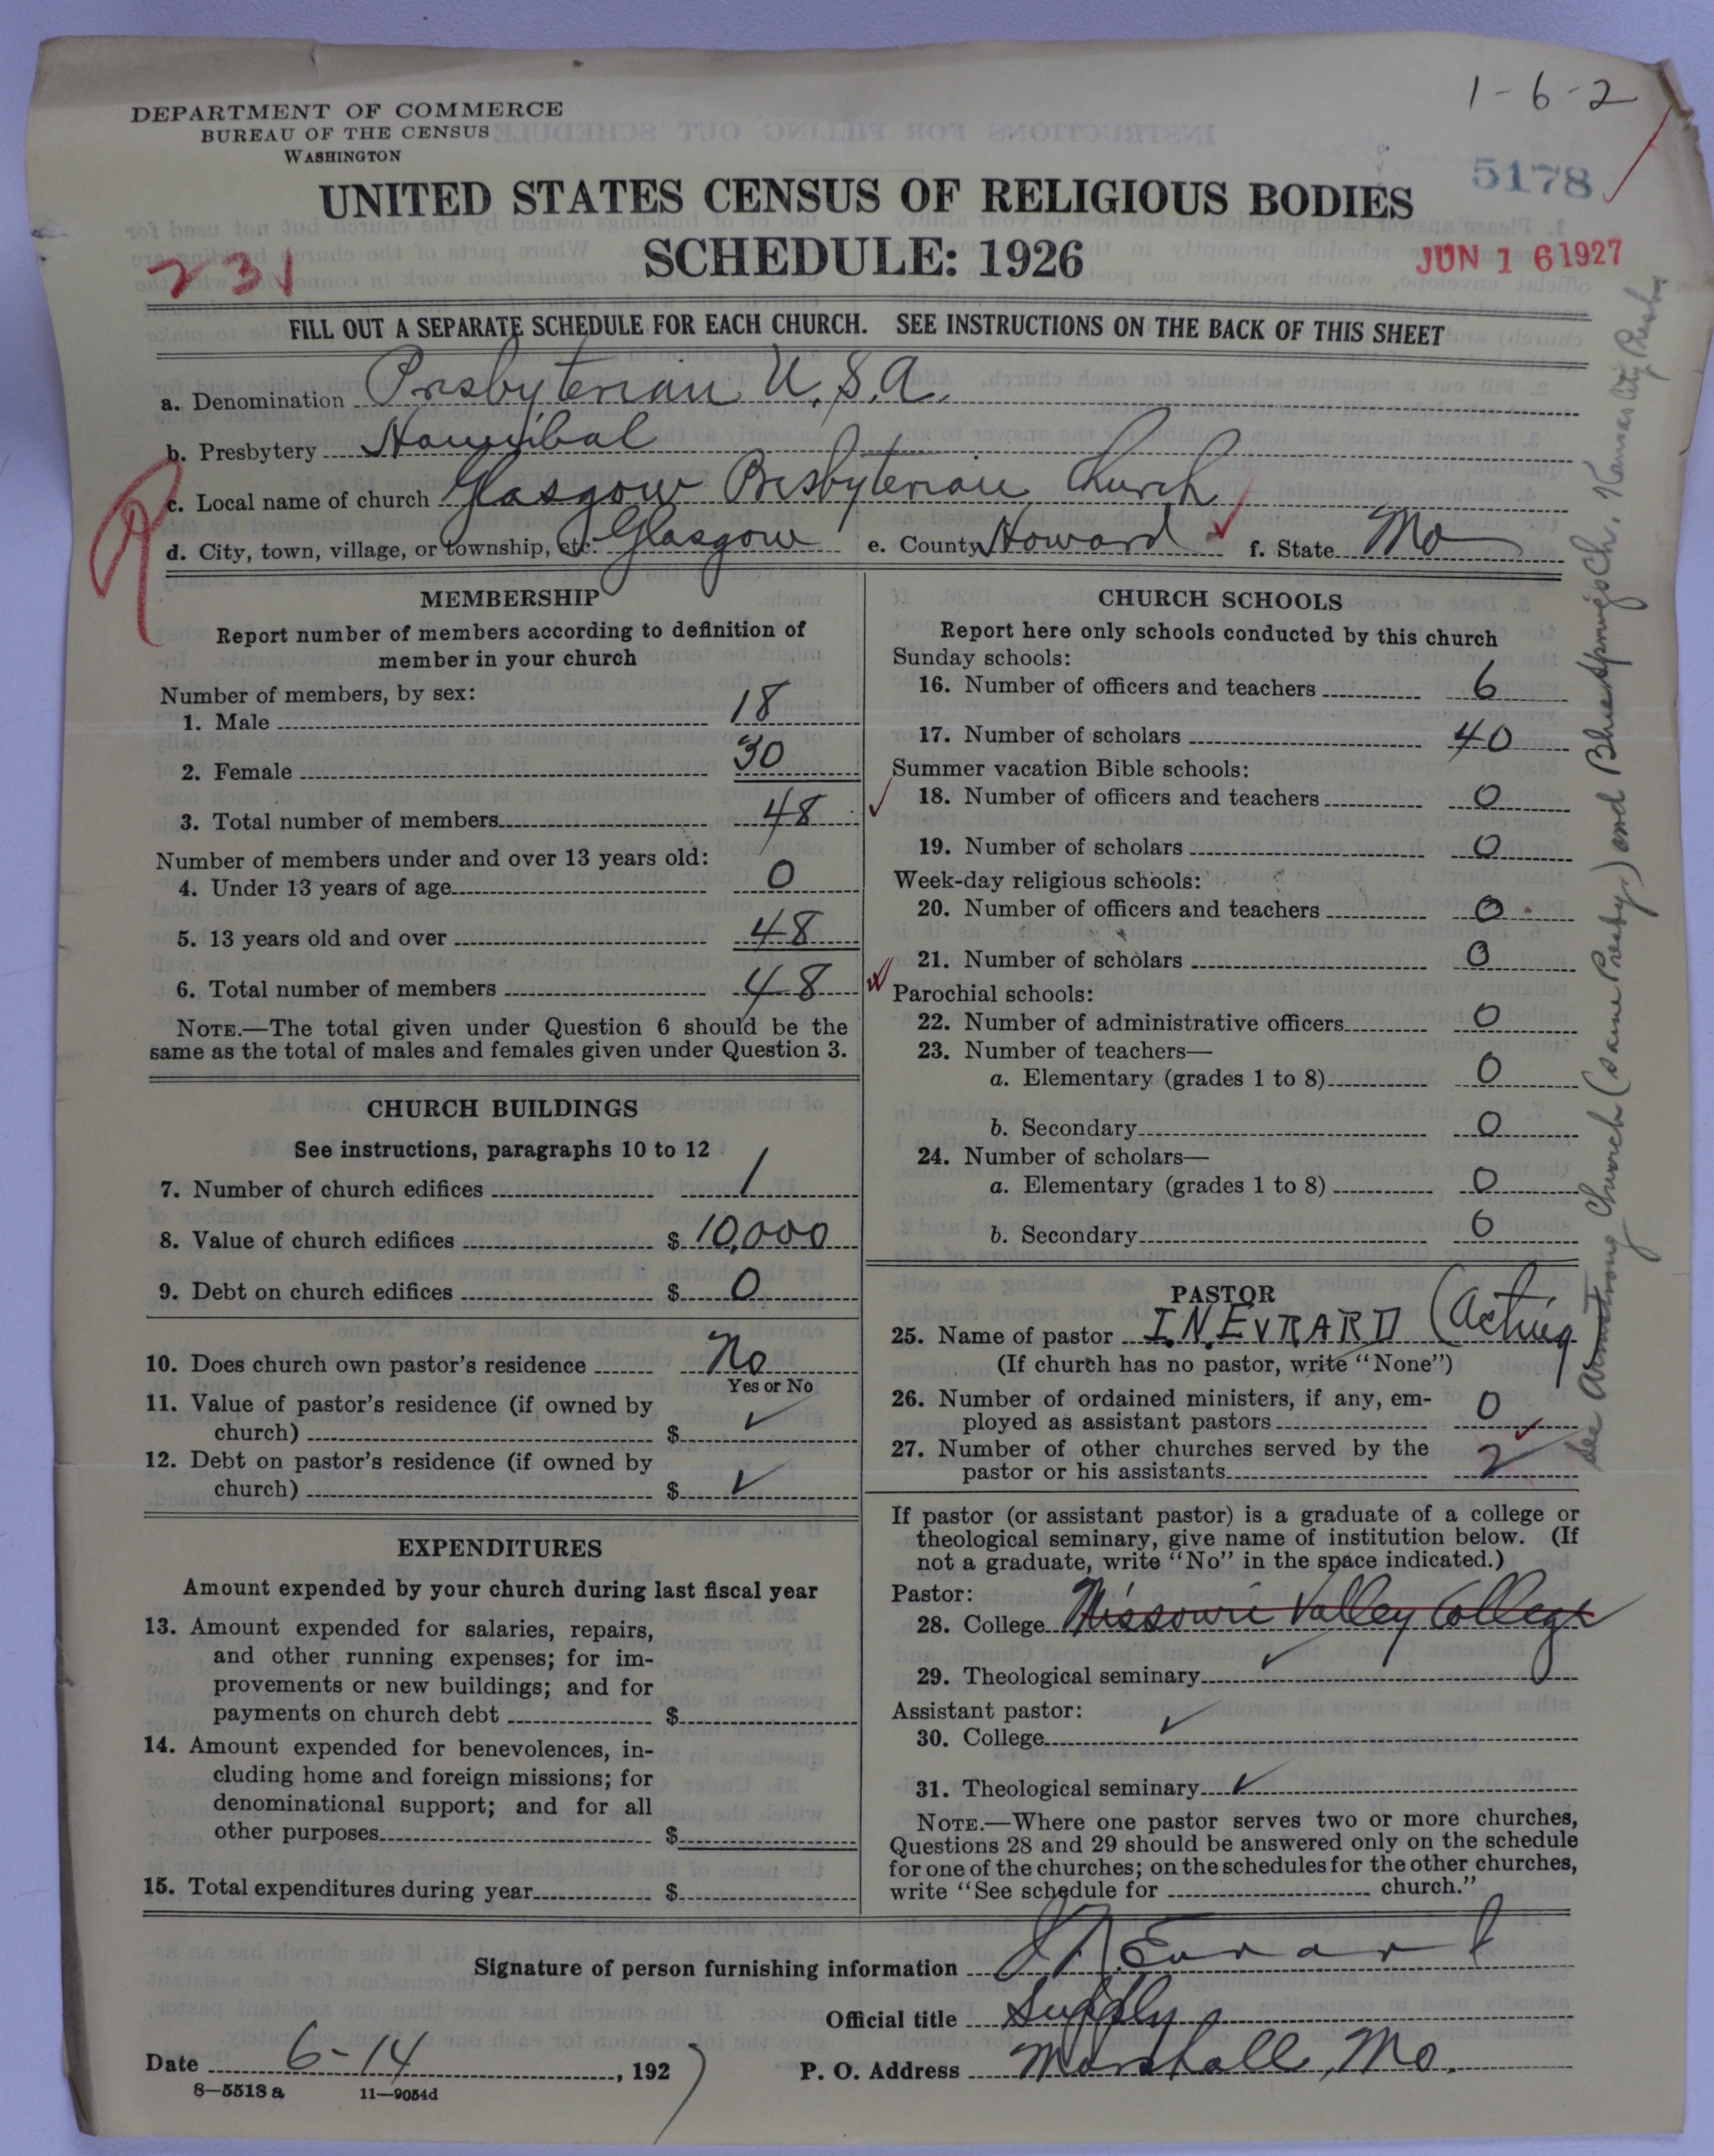 1-6-2
DEPARTMENT OF COMMERCE
BUREAU OF THE CENSUS
WASHINGTON
5178
UNITED STATES CENSUS OF RELIGIOUS BODIES
SCHEDULE: 1926
231
JUN 16 1927
FILL OUT A SEPARATE SCHEDULE FOR EACH CHURCH. SEE INSTRUCTIONS ON THE BACK OF THIS SHEET
a. Denomination Presbyterian U.S.A.
b. Presbytery Hannibal
c. Local name of church Glasgow Presbyterian Church
d. City, town, village, or township, etc. Glasgow e. County Howard f. State Mo
MEMBERSHIP
Report number of members according to definition of
member in your church
Number of members, by sex:
1. Male 18
2. Female 30
3. Total number of members 48
Number of members under and over 13 years old:
4. Under 13 years of age 0
5. 13 years old and over 48
6. Total number of members 48
NOTE.—The total given under Question 6 should be the
same as the total of males and females given under Question 3.
CHURCH BUILDINGS
See instructions, paragraphs 10 to 12
7. Number of church edifices 1
8. Value of church edifices $ 10,000
9. Debt on church edifices $ 0
10. Does church own pastor's residence No
Yes or No
11. Value of pastor's residence (if owned by
church) $ ✓
12. Debt on pastor's residence (if owned by
church) $ ✓
EXPENDITURES
Amount expended by your church during last fiscal year
13. Amount expended for salaries, repairs,
and other running expenses; for im-
provements or new buildings; and for
payments on church debt $
14. Amount expended for benevolences, in-
cluding home and foreign missions; for
denominational support; and for all
other purposes $
15. Total expenditures during year $
CHURCH SCHOOLS
Report here only schools conducted by this church
Sunday schools:
16. Number of officers and teachers 6
17. Number of scholars 40
Summer vacation Bible schools:
18. Number of officers and teachers 0
19. Number of scholars 0
Week-day religious schools:
20. Number of officers and teachers 0
21. Number of scholars 0
Parochial schools:
22. Number of administrative officers 0
23. Number of teachers—
a. Elementary (grades 1 to 8) 0
b. Secondary 0
24. Number of scholars—
a. Elementary (grades 1 to 8) 0
b. Secondary 0
PASTOR
25. Name of pastor I.N. EVRARD (Acting
(If church has no pastor, write "None")
26. Number of ordained ministers, if any, em-
ployed as assistant pastors 0
27. Number of other churches served by the
pastor or his assistants 2
If pastor (or assistant pastor) is a graduate of a college or
theological seminary, give name of institution below. (If
not a graduate, write "No" in the space indicated.)
Pastor:
28. College Missouri Valley College
29. Theological seminary ✓
Assistant pastor:
30. College ✓
31. Theological seminary ✓
NOTE.—Where one pastor serves two or more churches,
Questions 28 and 29 should be answered only on the schedule
for one of the churches; on the schedules for the other churches,
write "See schedule for church."
See Armstrong Church (same Presby.) and Blue Springs Ch, Kansas City Presby
Signature of person furnishing information I N. Evrard
Official title Supply
Date 6-14, 1927 P. O. Address Marshall, Mo.
8—5518 a 11—9054d